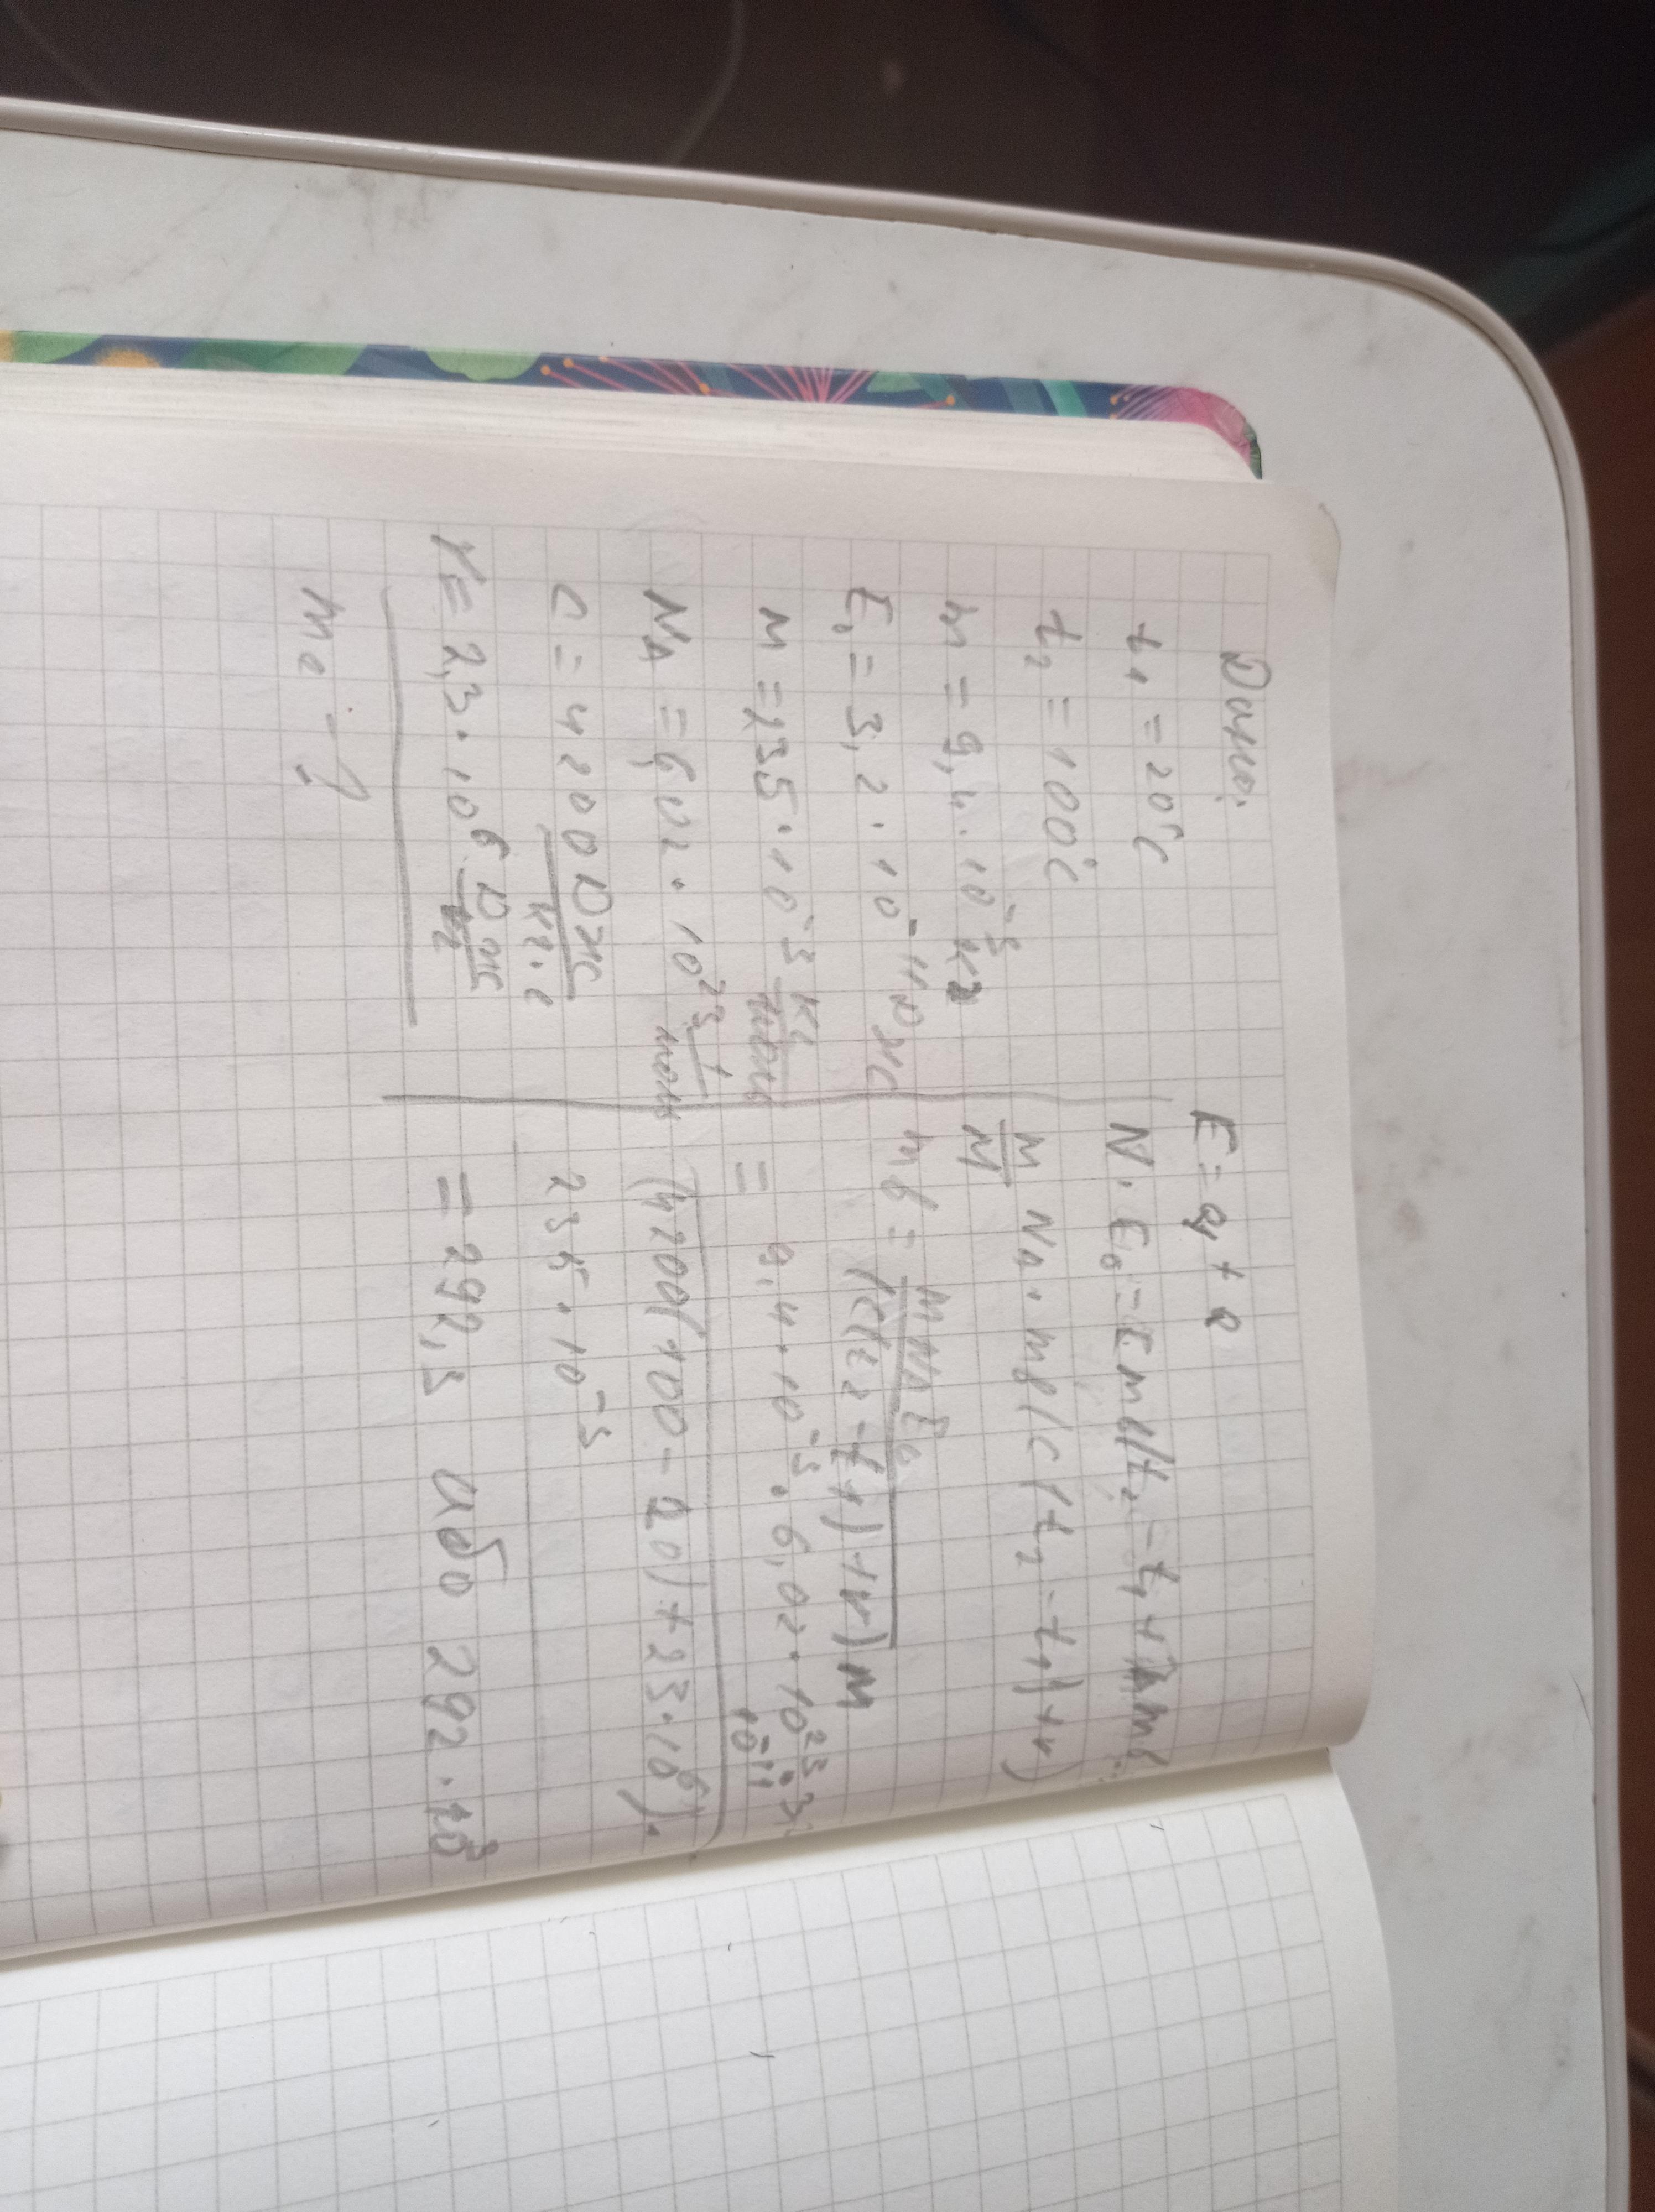 Дано:
t₁ = 20°C
t₂ = 100°C
m = 9,4 · 10⁻⁵ кг
E₀ = 3,2 · 10⁻¹¹ Дж
M = 235 · 10⁻³ кг/моль
N_A = 6,02 · 10²³ 1/моль
c = 4200 Дж/кг·c
r = 2,3 · 10⁶ Дж/кг
E = Q₁ + Q
N · E₀ = (t₂ - t₁ +
m/M N_A · mв (c (t₂ - t₁) + r)
mв = m N_A E₀ / (c(t₂ - t₁) + r) M
= 9,4 · 10⁻⁵ · 6,02 · 10²³ · 3, 10⁻¹¹
(4200(100 - 20) + 23 · 10⁶) ·
235 · 10⁻³
= 292,3 або 292 · 10³